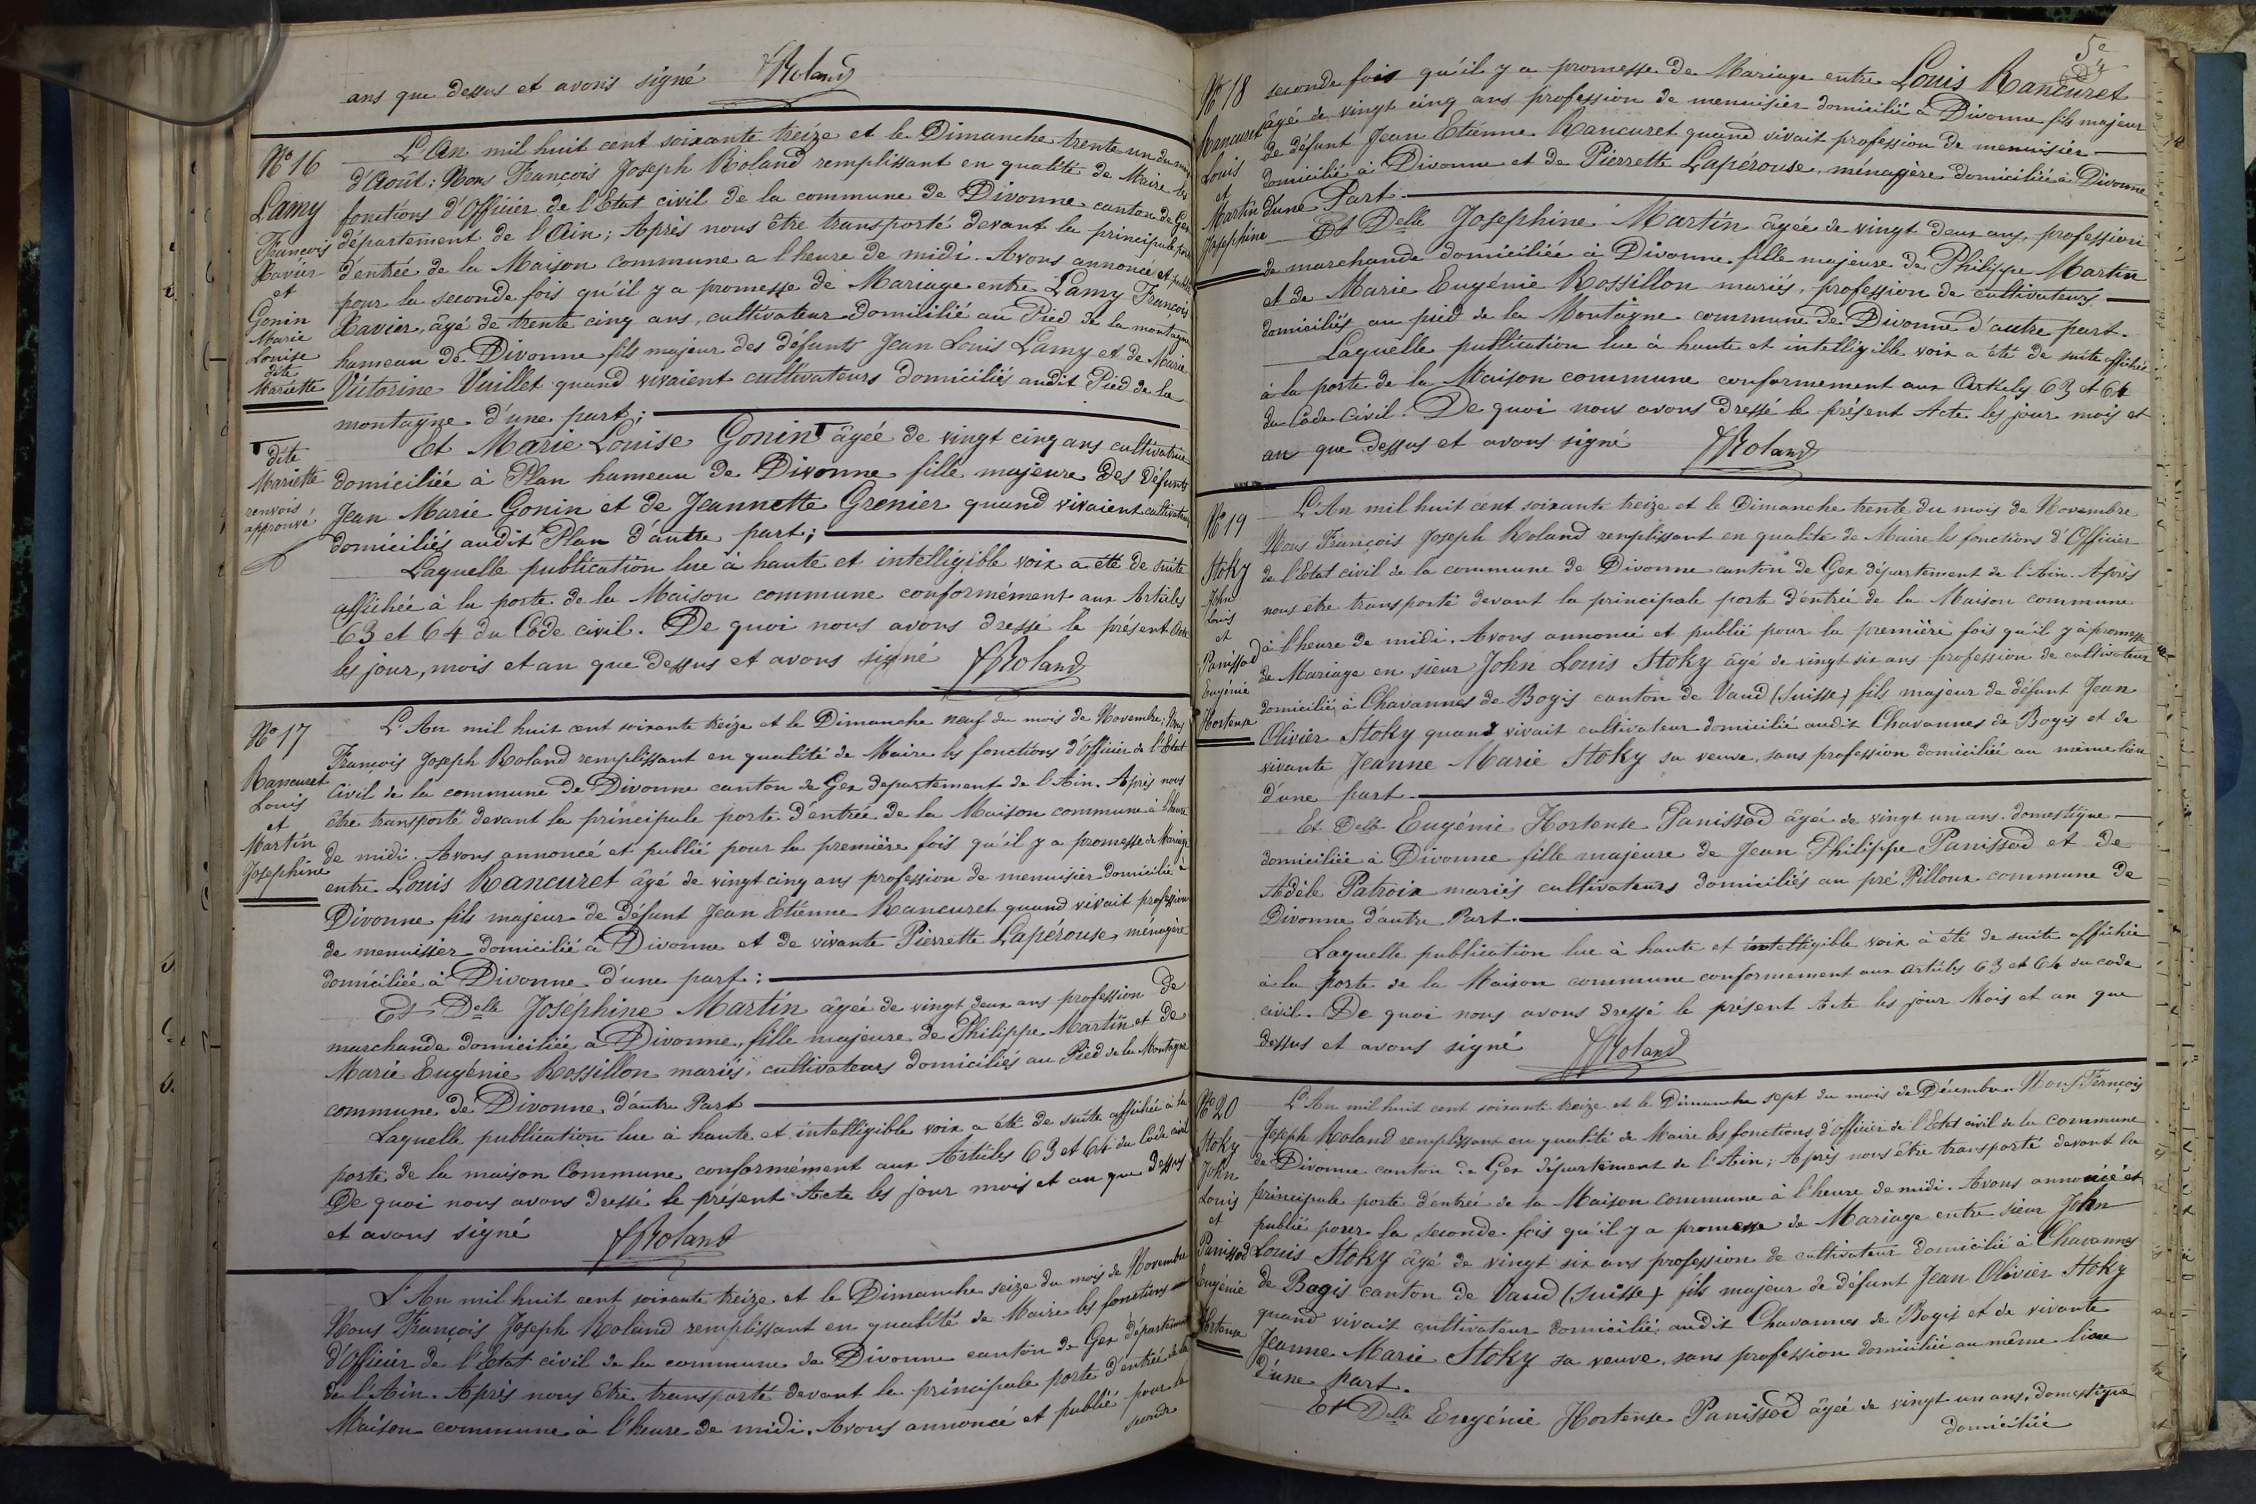 ans que dessus et avons signé FRoland
N° 16
Lamy
François
Xavier
et
Gonin
Marie
Louise
dite
Mariette
L'An mil huit cent soixante treize et le Dimanche trente un du mois
d'Août; Nous François Joseph Roland remplissant en qualité de Maire les
fonctions d'Officier de l'Etat civil de la commune de Divonne canton de Gex
département de l'Ain; Après nous être transporté devant la principale porte
d'entrée de la Maison commune a l'heure de midi. Avons annoncé et publié
pour la seconde fois qu'il y a promesse de Mariage entre Lamy François
Xavier, âgé de trente cinq ans, cultivateur domicilié au Pied de la montagne
hameau de Divonne fils majeur des défunts Jean Louis Lamy et de Marie
Victorine Vuillet quand vivaient cultivateurs domiciliés audit Pied de la
montagne d'une part;
dite
Mariette
renvois
approuvé
Et Marie Louise Gonin âgée de vingt cinq ans cultivatrice
domiciliée à Plan hameau de Divonne fille majeure des défunts
Jean Marie Gonin et de Jeannette Grenier quand vivaient cultivateurs
domiciliés audit Plan d'autre part;
Laquelle publication lue à haute et intelligible voix a été de suite
affichée à la porte de la Maison commune conformément aux Articles
63 et 64 du Code civil. De quoi nous avons dressé le présent Acte
les jour, mois et an que dessus et avons signé FRoland
N° 17
Rancuret
Louis
et
Martin
Josephine
L'An mil huit cent soixante treize et le Dimanche neuf du mois de Novembre; Nous
François Joseph Roland remplissant en qualité de Maire les fonctions d'Officier de l'Etat
Civil de la commune de Divonne canton de Gex departement de l'Ain. Après nous
être transporté devant la principale porte d'entrée de la Maison commune à l'heure
de midi. Avons annoncé et publié pour la première fois qu'il y a promesse de Mariage
entre Louis Rancuret âgé de vingt cinq ans profession de menuisier domicilié à
Divonne fils majeur de défunt Jean Etienne Rancuret quand vivait profession
de menuisier domicilié à Divonne et de vivante Pierrette Lapérouse, ménagère
domiciliée à Divonne d'une part:
Et Delle Joséphine Martin âgée de vingt deux ans profession de
marchande domiciliée à Divonne, fille majeure de Philippe Martin et de
Marie Eugénie Rossillon mariés, cultivateurs domiciliés au Pied de la Montagne
commune de Divonne d'autre Part
Laquelle publication lue à haute et intelligible voix a été de suite affichée à la
porte de la maison Commune conformément aux Articles 63 et 64 du Code civil
De quoi nous avons dressé le présent Acte les jour mois et an que dessus
et avons signé FRoland
L'An mil huit cent soixante treize et le Dimanche seize du mois de Novembre
Nous François Joseph Roland remplissant en qualité de Maire les fonctions
d'Officier de l'Etat civil de la commune de Divonne canton de Gex département
de l'Ain. Après nous être transporté devant la principale porte d'entrée de la
Maison commune à l'heure de midi. Avons annoncé et publié pour la
seconde
5e
N° 18
Rancuret
Louis
et
Martin
Josephine
seconde fois qu'il y a promesse de Mariage entre Louis Rancuret
âgé de vingt cinq ans profession de menuisier domicilié à Divonne fils majeur
de défunt Jean Etienne Rancuret quand vivait profession de menuisier
domicilié à Divonne et de Pierrette Lapérouse, ménagère domiciliée à Divonne
d'une Part.
Et Delle Josephine Martin âgée de vingt deux ans, profession
de marchande domiciliée à Divonne fille majeure de Philippe Martin
et de Marie Eugénie Rossillon mariés, profession de cultivateurs
domiciliés au pied de la Montagne commune de Divonne d'autre part.
Laquelle publication lue à haute et intelligible voix a été de suite affichée
à la porte de la Maison commune conformement aux Articles 63 et 64
du Code Civil. De quoi nous avons dressé le présent Acte les jour mois et
an que dessus et avons signé FRoland
N° 19
Stoky
John
Louis
et
Panissod
Eugénie
Hortense
L'An mil huit cent soixante treize et le Dimanche trente du mois de Novembre
Nous François Joseph Roland remplissant en qualité de Maire les fonctions d'Officier
de l'Etat civil de la commune de Divonne canton de Gex département de l'Ain. Après
nous être transporté devant la principale porte d'entrée de la Maison commune
à l'heure de midi. Avons annoncé et publié pour la première fois qu'il y a promesse
de Mariage en sieur John Louis Stoky âgé de vingt six ans profession de cultivateur
domicilié, à Chavannes de Bogis canton de Vaud (Suisse) fils majeur de défunt Jean
Olivier Stoky quand vivait cultivateur domicilié audit Chavannes de Bogis et de
vivante Jeanne Marie Stoky sa veuve, sans profession domiciliée au même lieu
d'une part.
Et Delle Eugénie Hortense Panissod âgée de vingt un ans. domestique
domiciliée à Divonne fille majeure de Jean Philippe Panissod et de
Adèle Patroix mariés cultivateurs domiciliés au pré Pilloux commune de
Divonne d'autre Part.
Laquelle publication lue à haute et intelligible voix à été de suite affichée
à la porte de la Maison commune conformement aux articles 63 et 64 du code
civil. De quoi nous avons dressé le présent Acte les jour Mois et an que
dessus et avons signé FRoland
N° 20
Stoky
John
Louis
et
Panissod
Eugénie
Hortense
L'An mil huit cent soixante treize et le Dimanche sept du mois de Décembre. Nous François
Joseph Roland remplissant en qualité de Maire les fonctions d'Officier de l'Etat civil de la commune
de Divonne canton de Gex département de l'Ain; Après nous être transporté devant la
principale porte d'entrée de la Maison commune à l'heure de midi. Avons annoncé et
publié pour la seconde fois qu'il y a promesse de Mariage entre sieur John
Louis Stoky âgé de vingt six ans profession de cultivateur domicilié à Chavannes
de Bogis canton de Vaud (Suisse) fils majeur de défunt Jean Olivier Stoky
quand vivait cultivateur domicilié audit Chavannes de Bogis et de vivante
Jeanne Marie Stoky sa veuve, sans profession domiciliée au même lieu
d'une part.
Et Delle Eugénie Hortense Panissod âgée de vingt un ans, domestique
domiciliée